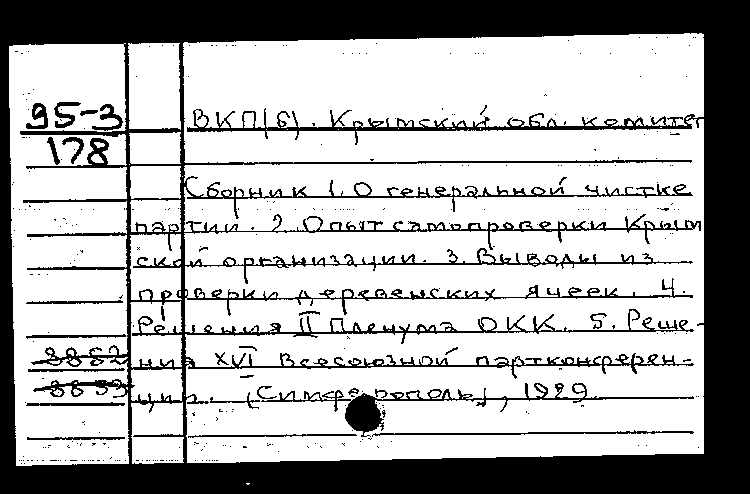 95-3
178
ВКП(б). Крымский обл. комитет
Сборник 1. О генеральной чистке
партии. 2. Опыт самопроверки Крым
ской организации. 3. Выводы из
проверки деревенских ячеек. 4.
Решения II Пленума ОКК. 5. Реше-
ния XVI Всесоюзной партконферен-
ции. [Симферополь], 1929